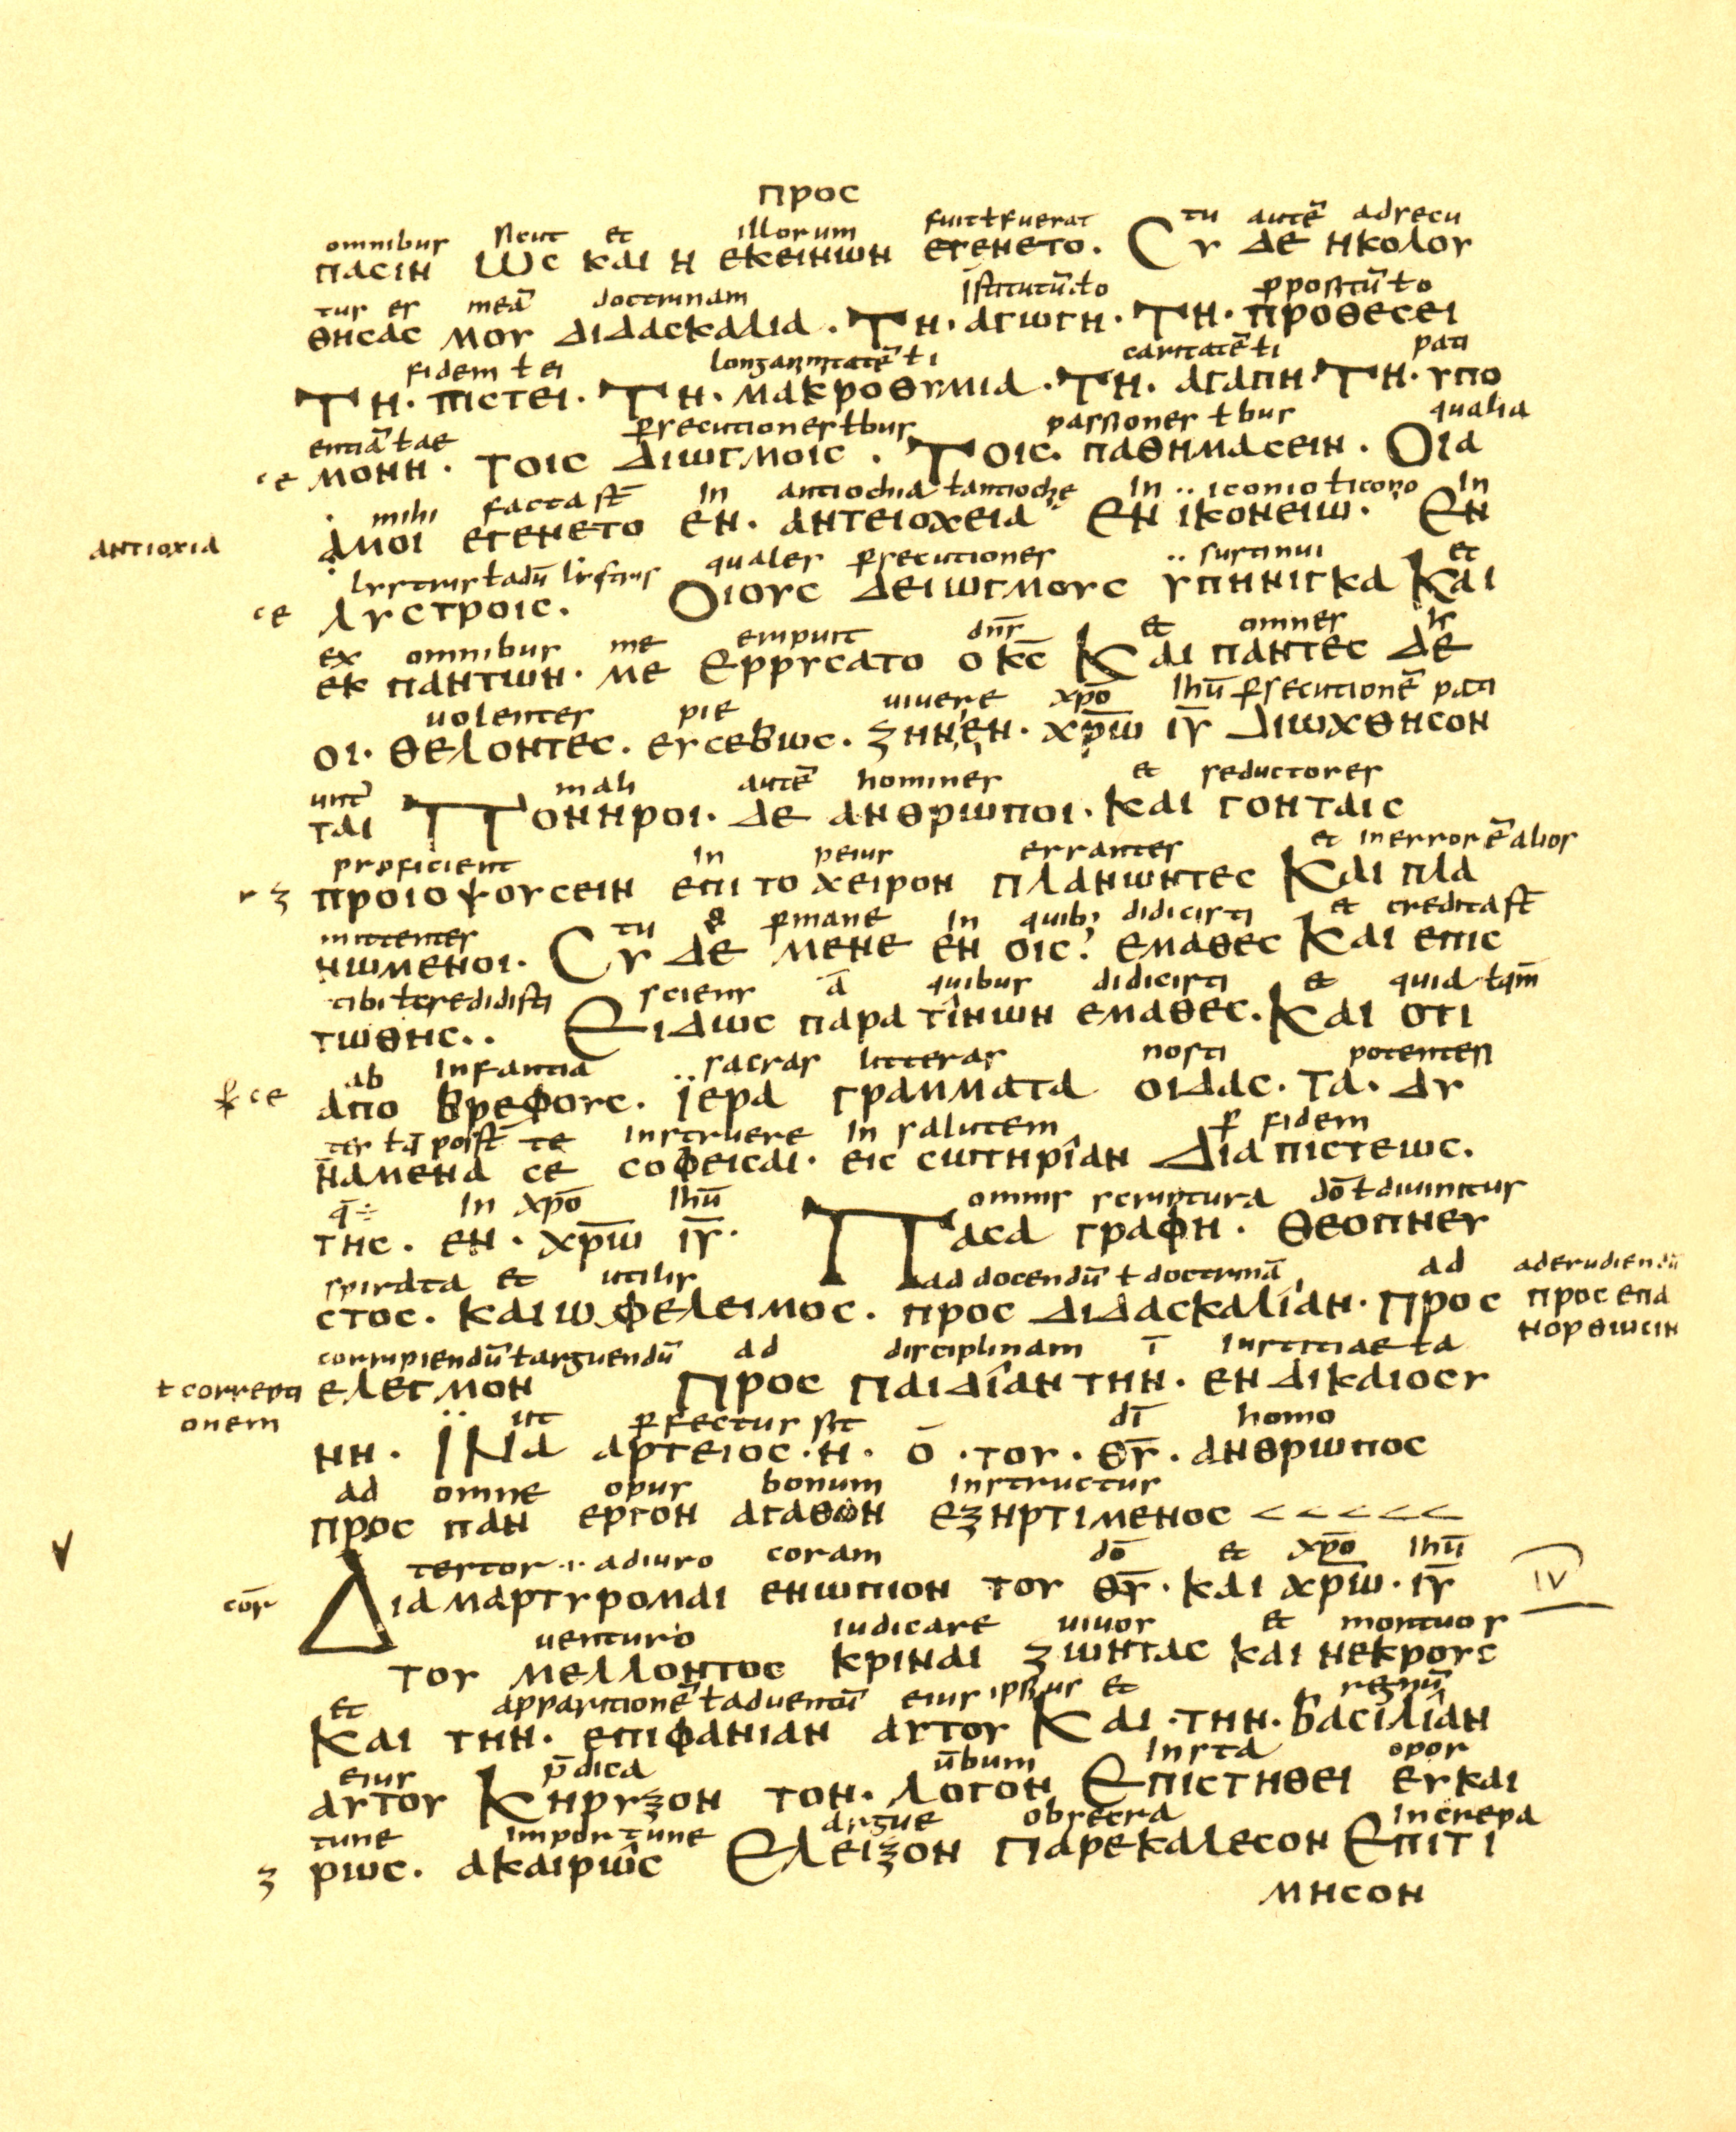 προς
omnibus sicut et illorum fuit ł fuerat tu autē adsecu
παcιν ωc και η εκεινων εγενετο. Cυ δε ηκολου
tus es meā doctrinam īstitutū ł to ꝓpositū ł to
θηcαc μου διδαcκαλια. Τη· αγωγη· Τη· προθεcει
fidem ł ei longanimitatē ł i caritatē ł i pati
Τη· πιcτει. Τη· μακροθυμια. Τη· αγαπη. Τη· υπο
entiā ł ae ꝑsecutiones ł bus passiones ł bus qualia
cε μονη. τοιc διωγμοιc. Τοιc. παθημαcειν. Οια
mihi facta sт̄ in antiochia ł antioche in iconio ł icono in
αμοι εγενετο εν. αντειοχεια εν ικονειω. Εν
αντιοχια
qualeſ ꝑsecutiones sustinui et
cε λυcτροιc. Οιουc δειωγμουc υπηνιγκα Και
ex omnibus me eripuit dnſ et omnes
εκ παντων· με ερρυcατο ο κ̄c̄ Και παντεc δε
uolentes pie uiuere xp̄o ihū ꝑsecutionē pati
οι· θελοντεc. ευcεβωc. ζηνεν· χρ̄ω ιῡ διωχθηcον
unt̄ mali autē homines et seductores
ται Πονηροι. δε ανθρωποι. και γοηταιc
proficient in peius errantes et in errorē alios
υ ζ προιοψουcειν επι το χειρον πλανωντεc Και πλα
mittentes tu ꝑmane in quib; didicisti et credita sт̄
νωμενοι. Cυ δε μενε εν οιc. εμαθεc Και επιc
tibi ł credidisti sciens ā quibus didicisti et quia ł qm̄
τωθηc.. Ειδωc παρα τινων εμαθεc. Και οτι
ab infantia sacras litteras nosti potentes
cε απο βρεφουc. ϊερα γραμματα οιδαc. τα. δυ
te instruere in salutem ꝑ fidem
ναμενα cε cοφειcαι. ειc cωτηριαν Δια πιcτεωc.
in xp̄o ihū omnis scriptura dō ł diuinitus
τηc. εν. χρ̄ω ιῡ. Παcα γραφη. θεοπνευ
spirata et utilis ad docendū ł doctrinā ad ad erudiendū
cτοc. και ωφελειμοc. προc διδαcκαλιαν. Προc προc επα
νορθωcιν
corripiendū ł arguendū ad disciplinam ī iustitiae ł a
ł correpti ελεγμον Προc παιδιαν την. εν δικαιοcυ
onem ut ꝑfectus sit dī homo
νη. Ινα αρτειοc. η. ο. του. θῡ. ανθρωποc
ad omne opus bonum instructus
προc παν εργον αγαθον εξηρτιμενοc < < < < <
testor .i. adiuro coram dō et xp̄o ihū
cor̄ Διαμαρτυρομαι ενωπιον του θῡ. και χρ̄ω. ιῡ IV
venturo iudicare uiuos et mortuos
του μελλοντοc κριναι ζωνταc και νεκρουc
et apparitionē ł aduentū eius ipsius et regnū
και την. επιφανιαν αυτου Και. την. βαcιλιαν
eius p̄dica ūbum insta opor
αυτου Κηρυξον τον. λογον Επιcτηθει ευκαι
tune importune argue obsecra increpa
ζ ρωc. ακαιρωc Ελειξον Παρεκαλεcον Επιτι
μηcον